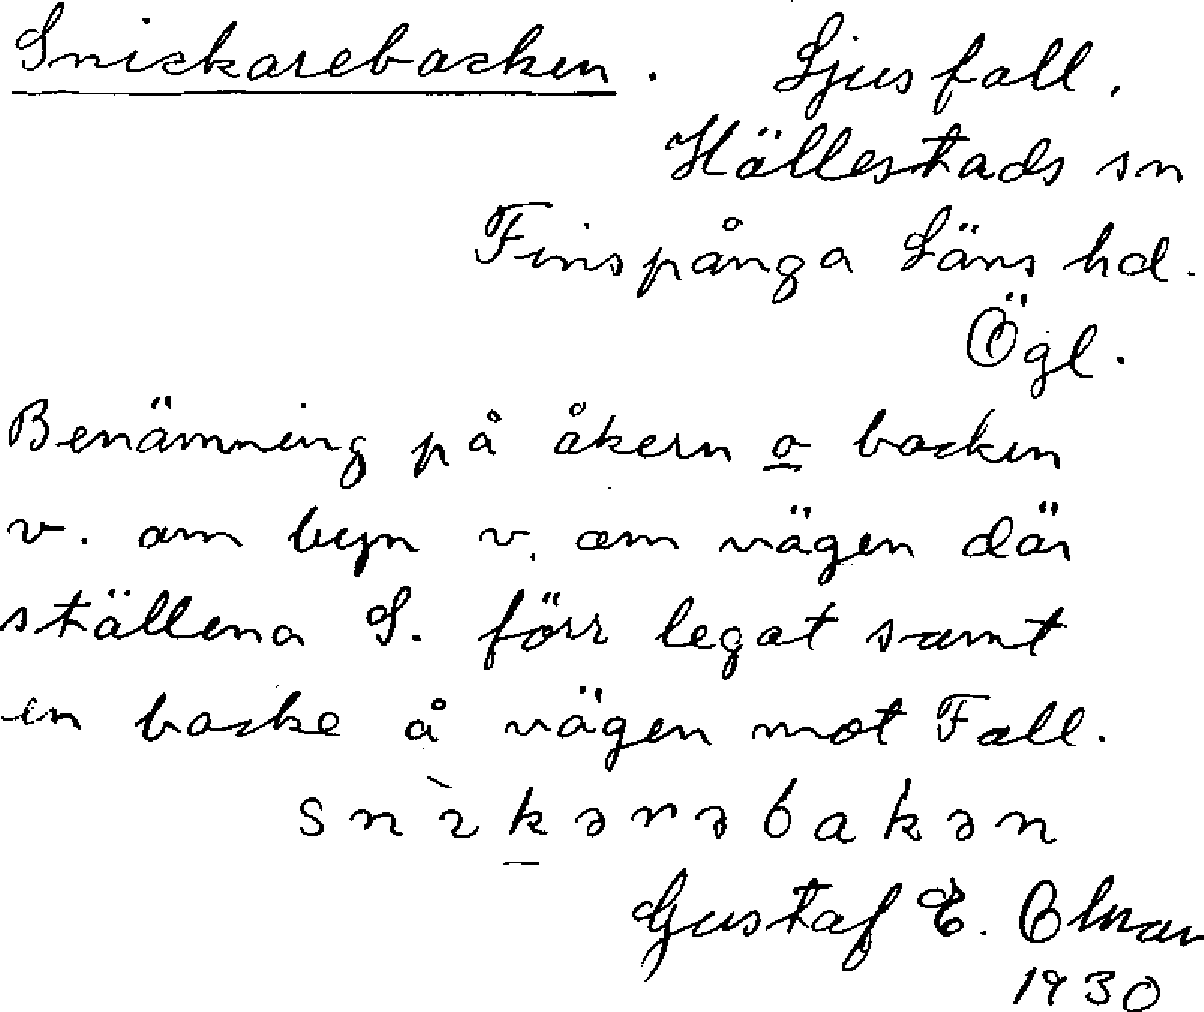 Snickarebacken. Ljusfall.
Hällestads sn
Finspånga Läns hd.
Ögl.
Benämning på åkern o backen
v. om byn v. om vägen där
ställena S. förr legat samt
en backe å vägen mot Fall.
snìkərəbakən
Gustaf E.
1930